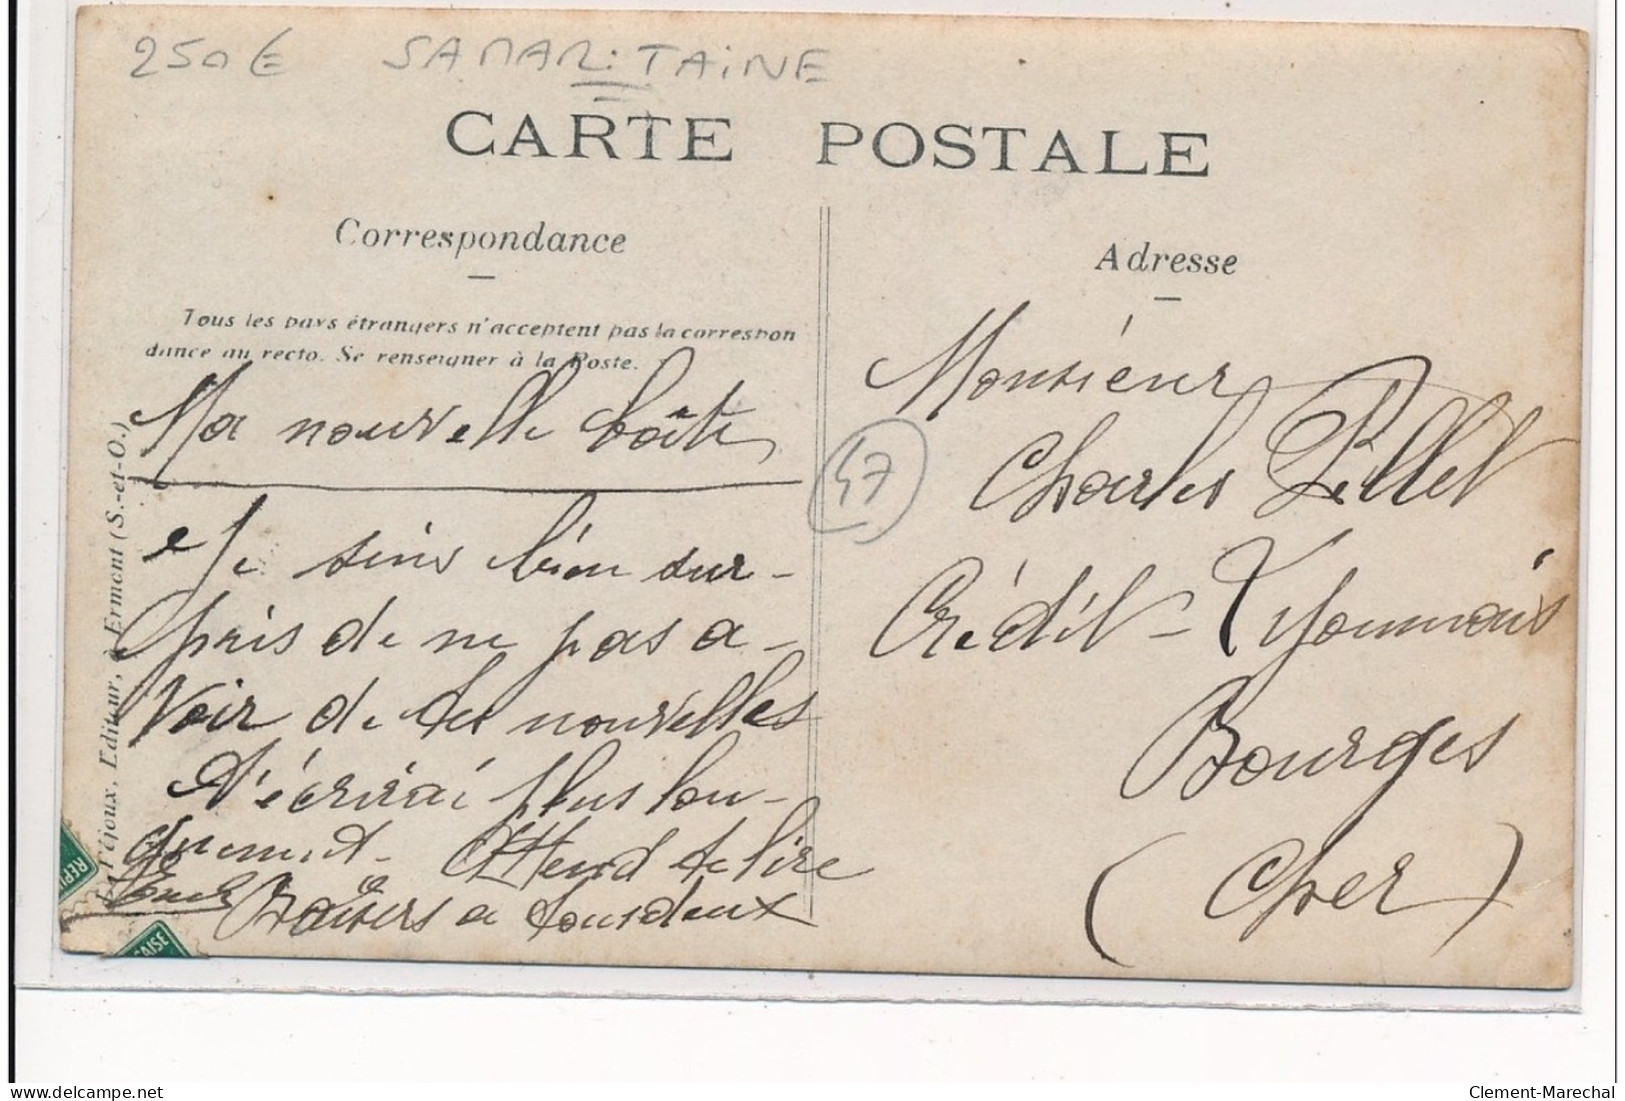 250€ SAMARITAINE
CARTE POSTALE
Correspondance
Tous les pays étrangers n'acceptent pas la correspon
dance au recto. Se renseigner à la Poste.
Ma nouvelle boîte
Je suis bien sur-
pris de ne pas a-
voir de tes nouvelles
T'écrirai plus lon-
guement. Attend te lire
Baisers a tous deux
Editeur, à Ermont (S.-et-O.)
47
Adresse
Monsieur
Charles Pillet
Crédit-Lyonnais
Bourges
(Cher)
Clement-Marechal